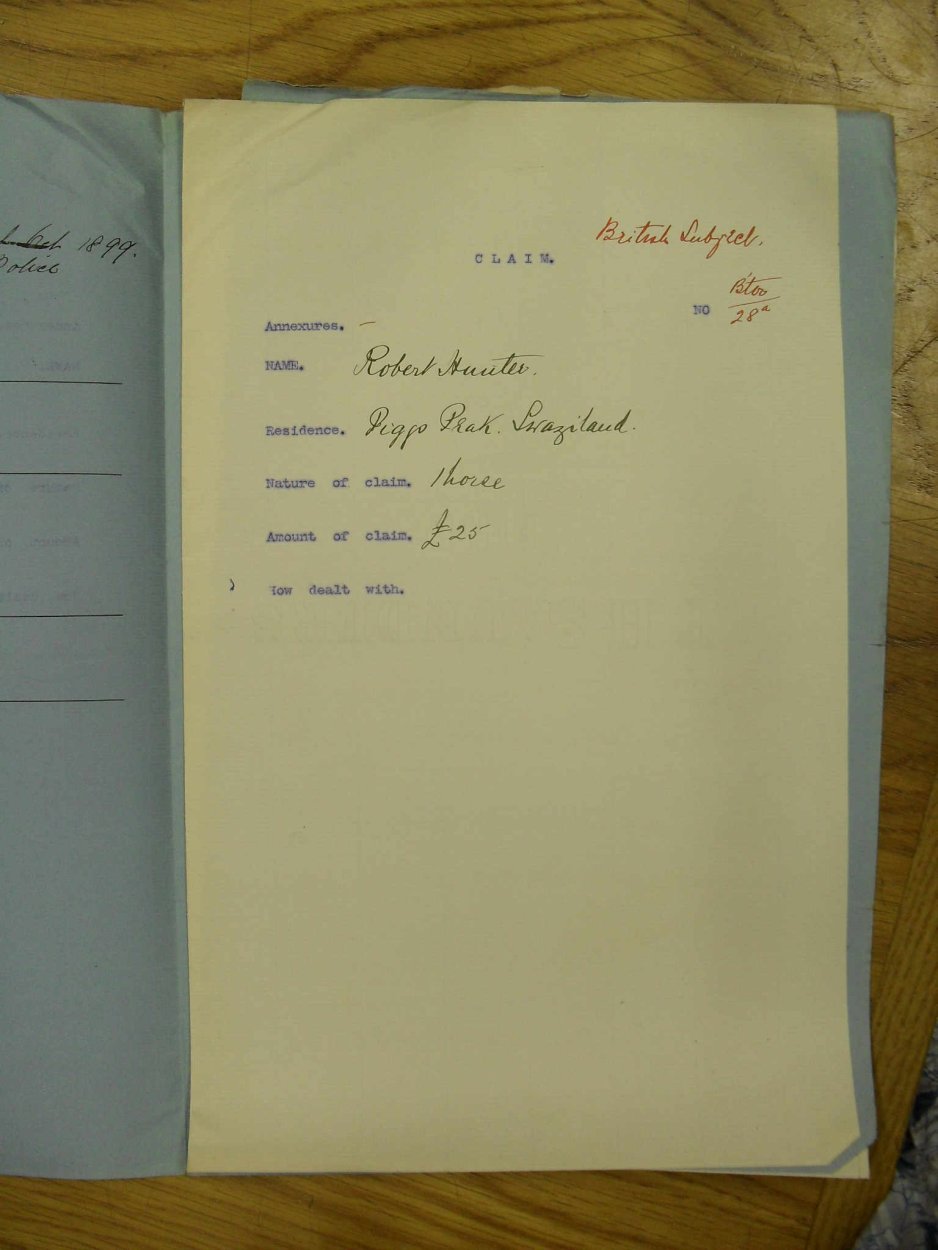 1899.
Police
British Subject.
C L A I M.
NO B'ton
28ª
Annexures. –
NAME. Robert Hunter.
Residence. Piggs Peak. Swaziland.
Nature of claim. 1 horse
Amount of claim. £25
How dealt with.